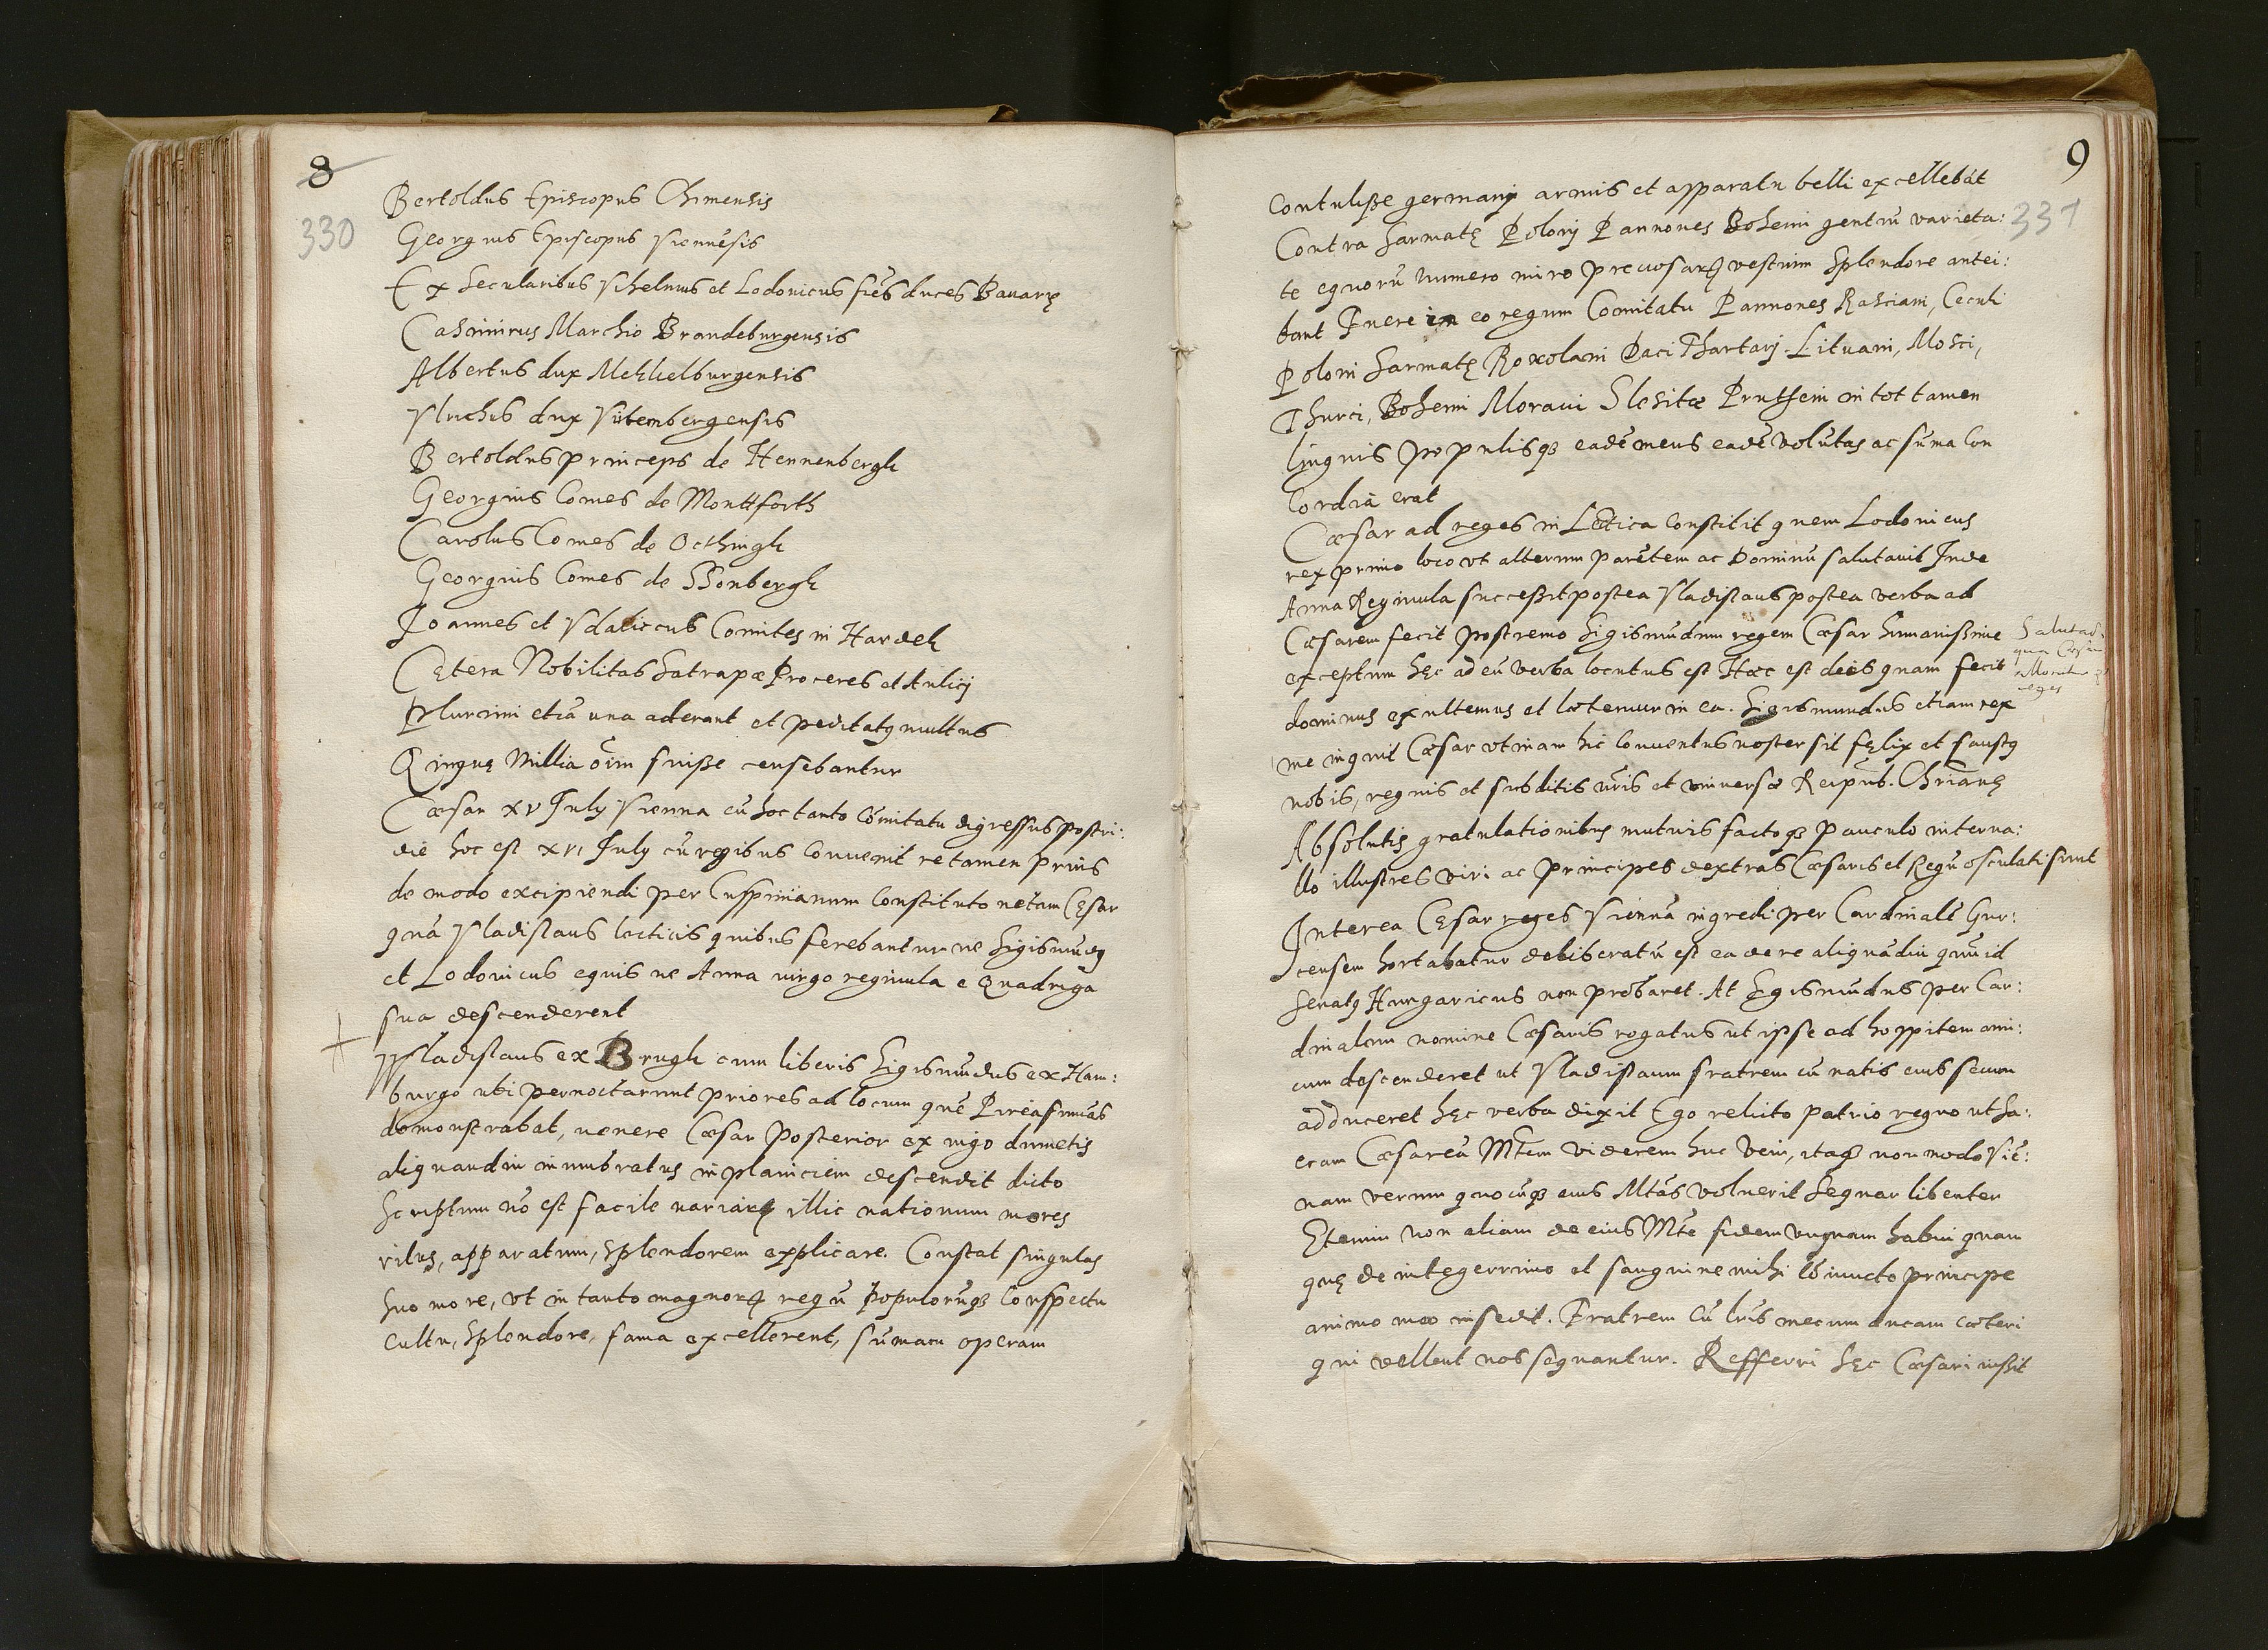 8
330
Bertoldus Episcopus Chimensis
Georgius Episcopus Viennēsis
Ex secularibus Vilhelmus et Lodovicus frēs duces Bavarię
Casimirus Marchio Brandeburgensis
Albertus dux Mekhelburgensis
Vlrichus dux Virtembergensis
Bertoldus princeps de Hennenbergk
Georgius Comes de Monttforth
Carolus Comes de Octhingk
Georgius Comes de Sbonbergk
Ioannes et Vdalriccus Comites in Hardek
Cętera Nobilitas Satrapæ Proceres et Aulicj
Plurimi etiā una aderant et peditatꝰ multus
Qinquę Millia oīm fuiße censebantur
Cæsar xv July Vienna cū hoc tanto Comitatu digressus postri:
die hoc est xvi July cū regibus convenit re tamen prius
de modo excipiendi per Cuspinianum constituto ne tam Cęsar
quā Vladislaus lecticis quibus ferebantur ne Sigismūdꝰ
et Lodovicus equis ne Anna virgo reginula e Quadriga
sua descenderent
Wladislaus ex Brugk cum liberis Sigismūdus ex Ham:
burgo ubi pernoctarunt priores ad locum quē Pirea summās
demonstrabat, venere Cæsar posterior ex iugo dumetis
aliquandiu inumbratus in planiciem descendit dicto
Scriptum nō est facile variarꝝ illic nationum mores
ritus, apparatum, splendorem explicare. Constat singulas
suo more, vt in tanto magnorꝝ regū populorūqꝫ conspectu
cultu, splendore, fama excellerent, sūmam operam
9
331
contulisße germanij armis et apparatu belli excellebāt
Contra Sarmatę Polonj Pannones Bohemi gentiū varieta:
te equorū numero miro preciosarꝝ vestium splendore antei:
bant Fuere in eo regum Comitatu Pannones Rasciani, Ceculi
Poloni Sarmatę Roxolani Daci Thartarj Lituani, Mosci,
Thurci, Bohemi Moravi Slesitæ Prutheni in tot tamen
linguis populisqꝫ eadē mens eadē volūtas ac sūma con
cordia erat
Cæsar ad reges in Lectica constitit quem Lodovicus
rex primo loco vt alterum parētem ac Dominū salutavit Inde
Anna Reginula succeßit postea Vladislaus postea verba ad
Cæsarem fecit postremo Sigismundum regem Cæsar humanißime
exceptum hęc ad eū verba locutus est Hæc est dies quam fecit
Salutad
qua Cæsar
reges
dominus exultemus et lætemur in ea. Sigismundus etiam rex
me inquit Cæsar vtinam hic conventus noster sit fęlix et faustꝰ
nobis, regnis et subditis nr̄is et universæ Reipub. Chrīanę
Absolutis gratulationibus mutuis factoqꝫ pauculo interva:
llo illustres viri ac principes dextras Cæsaris et Regū osculati sunt
Interea Cęsar reges Viennā ingredi per Cardinalē Gur:
censem hortabatur deliberatū est ea de re aliquādiu quū id
Senatꝰ Hungaricus non probaret. At Sigismūdus per Car:
dinalem nomine Cæsaris rogatus ut ipse ad hospitem ami:
cum descenderet ut Vladislaum fratrem cū natis eius secum
adduceret hęc verba dixit Ego relicto patrio regno ut Sa:
cram Cæsareā Mtem viderem huc veni, itaqꝫ non modo Viē:
nam verum quocūqꝫ eius Mtās voluerit sequar libenter
Etenim non aliam de eius Mte fidem vnquam habui quam
quę de integerrimo et sanguine mihi coniuncto principe
animo meo insedit. Fratrem cū lris mecum ducam cæteri
qui vellent nos sequantur. Refferri hęc Cæsari iußit